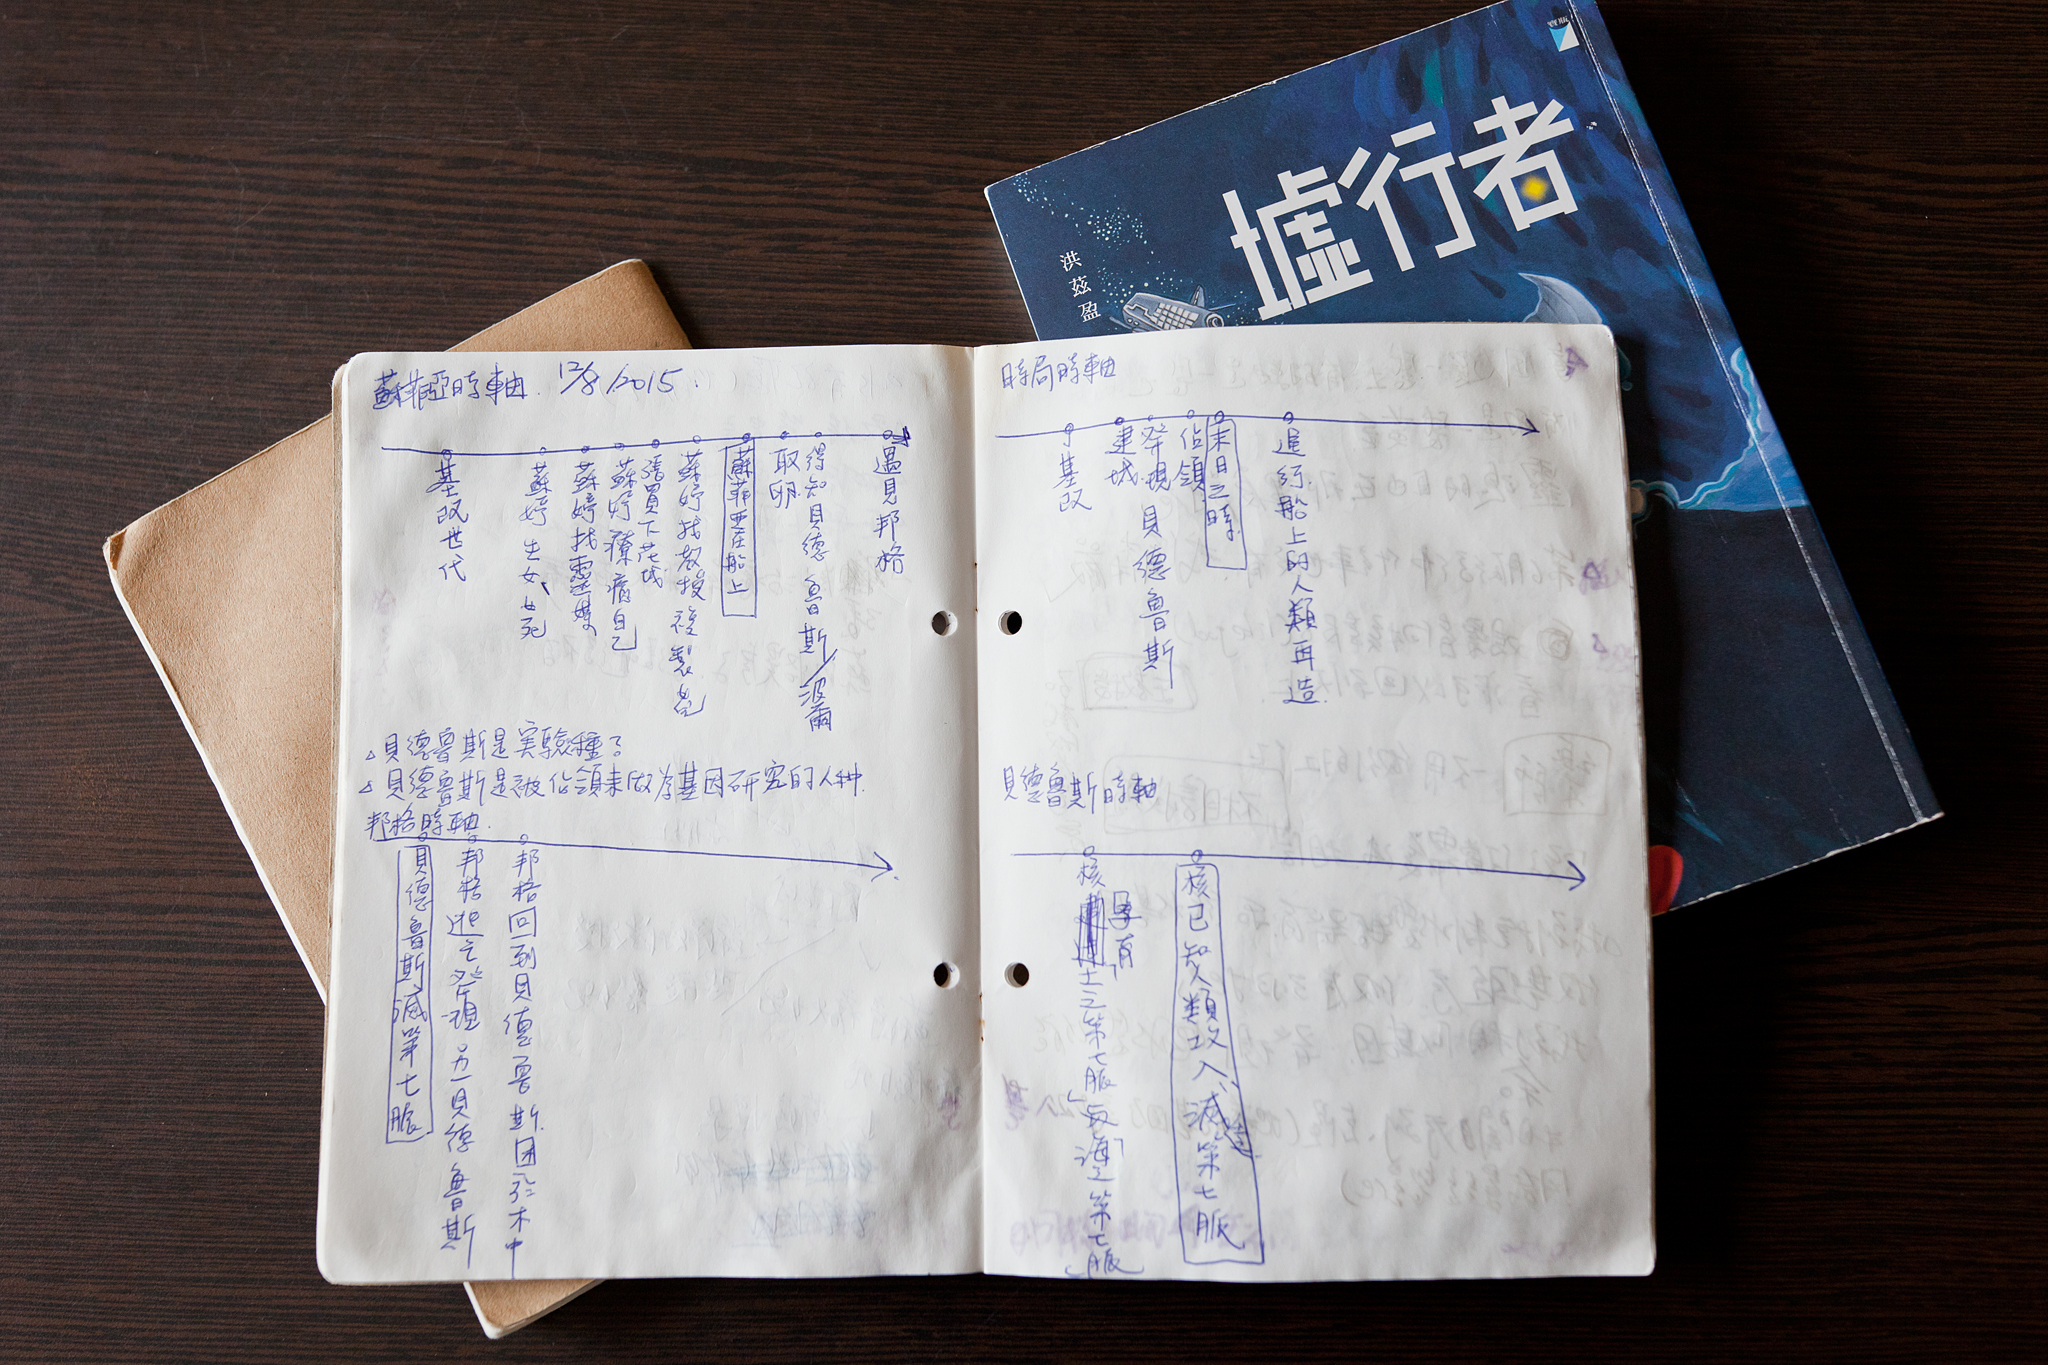 墟行者
洪茲盈
寶瓶
蘇菲亞時軸 12/8/2015.
基改世代
蘇婷生女、女死
蘇婷找靈媒
蘇婷療癒自己
買下茂城
蘇婷找教授複製
蘇菲亞在船上
取卵
得知貝德魯斯/波爾
遇見邦格
△貝德魯斯是實驗種?
△貝德魯斯是被佔領來做為基因研究的人种.
邦格時軸.
貝德魯斯滅第七脈
邦格逃亡發現另一貝德魯斯
邦格回到貝德魯斯.困於木中
時局時軸
基改
建城
發現貝德魯斯
佔領
末日之時.
進行船上的人類再造.
貝德魯斯時軸
核孕有土之第七脈
第七脈
核已知人類攻入、滅第七脈